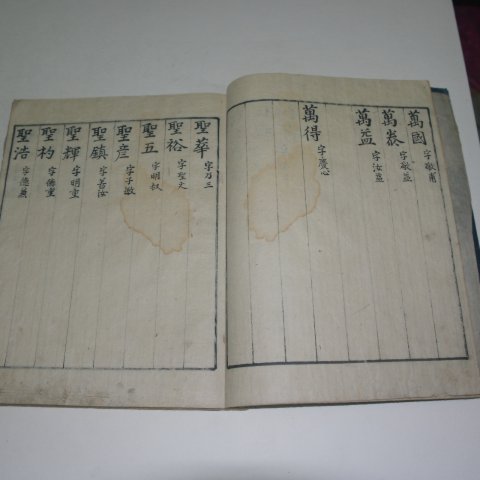 萬國 字敬甫
萬泰 字敬益
萬益 字汝益
萬得 字慶心
聖華 字乃三
聖裕 字聖文
聖五 字明叔
聖彦 字子敬
聖鎮 字善汝
聖輝 字明重
聖杓 字德重
聖浩 字德兼